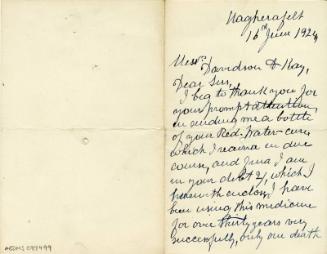 Magherafelt
16th June 1924
Messrs. Davidson & Kay,
Dear Sirs,
I beg to thank you for
your prompt attention,
in sending me a bottle
of your Red-Water-cure,
which I received in due
course, and find I am
in your debt 2/, which I
herewith enclose, I have
been using this medicine
for over thirty years very
successfully, only one death